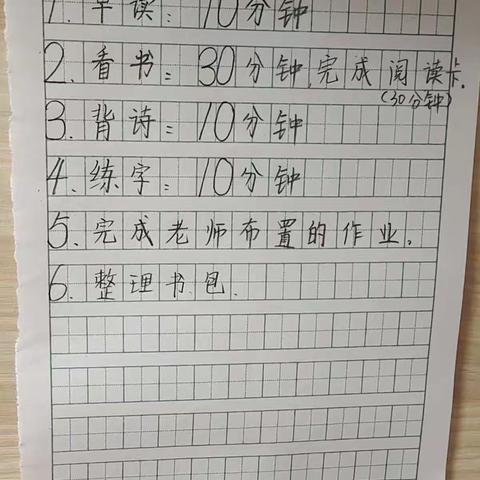 1. 早读：10分钟
2. 看书：30分钟，完成阅读卡.
(30分钟)
3. 背诗：10分钟
4. 练字：10分钟
5. 完成老师布置的作业.
6. 整理书包.